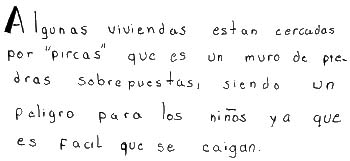 Algunas viviendas estan cercadas
por "pircas" que es un muro de pie-
dras sobrepuestas, siendo un
peligro para los niños ya que
es facil que se caigan.